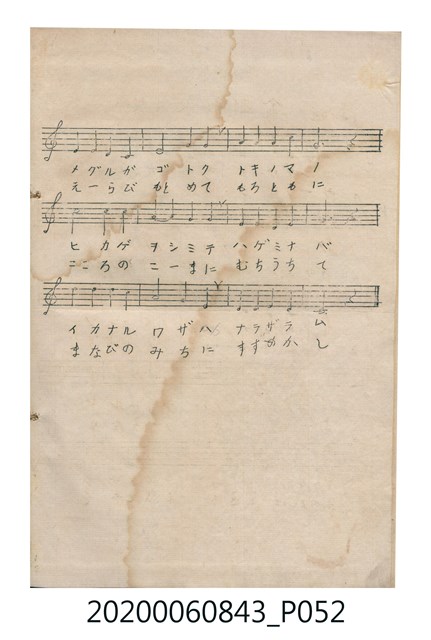 メグルガ ゴトク トキノマノ
えーらび もとめて もろともに
ヒカゲ ヲシミテ ハゲミナバ
こころの こーまに むちうちて
イカナル ワザハ ナラザラム
まなびの みちに すすめかし
20200060843_P052